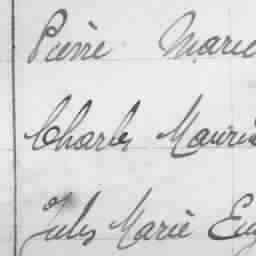 Pierre Marie
Charles Mauri
Jules Marie Eug